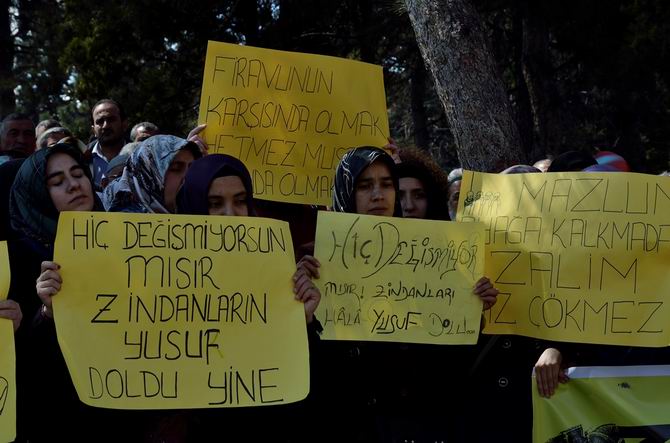 FİRAVUNUN
KARŞISINDA OLMAK
YETMEZ MUS
NDA OLMAK
HİÇ DEĞİSMİYORSUN
MISIR
ZİNDANLARIN
YUSUF
DOLDU YİNE
HİÇ DEĞİŞMİYOR
MISIR ZİNDANLARI
HÂLÂ YUSUF DOLU...
MAZLUM
AYAĞA KALKMADA
ZALİM
DİZ ÇÖKMEZ